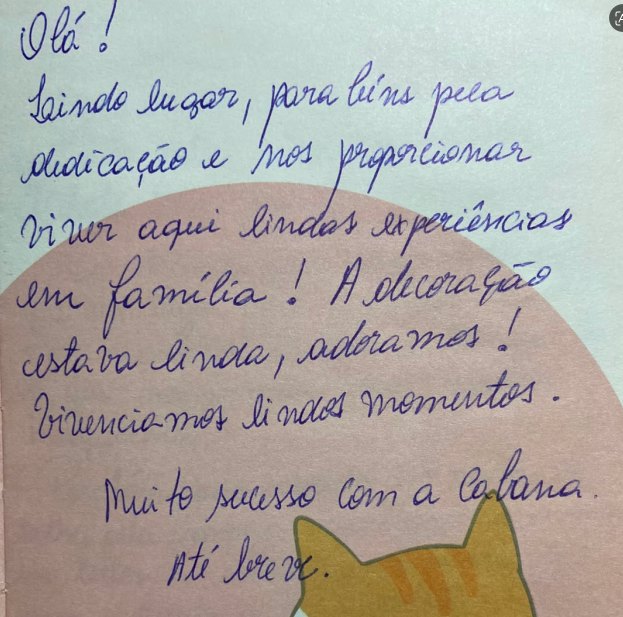 Olá!
Saindo lugar, parabéns pela
dedicação e nos proporcionar
viver aqui lindas experiências
em família! A decoração
estava linda, adoramos!
Vivenciamos lindos momentos.
Muito sucesso com a Cabana.
Até breve.